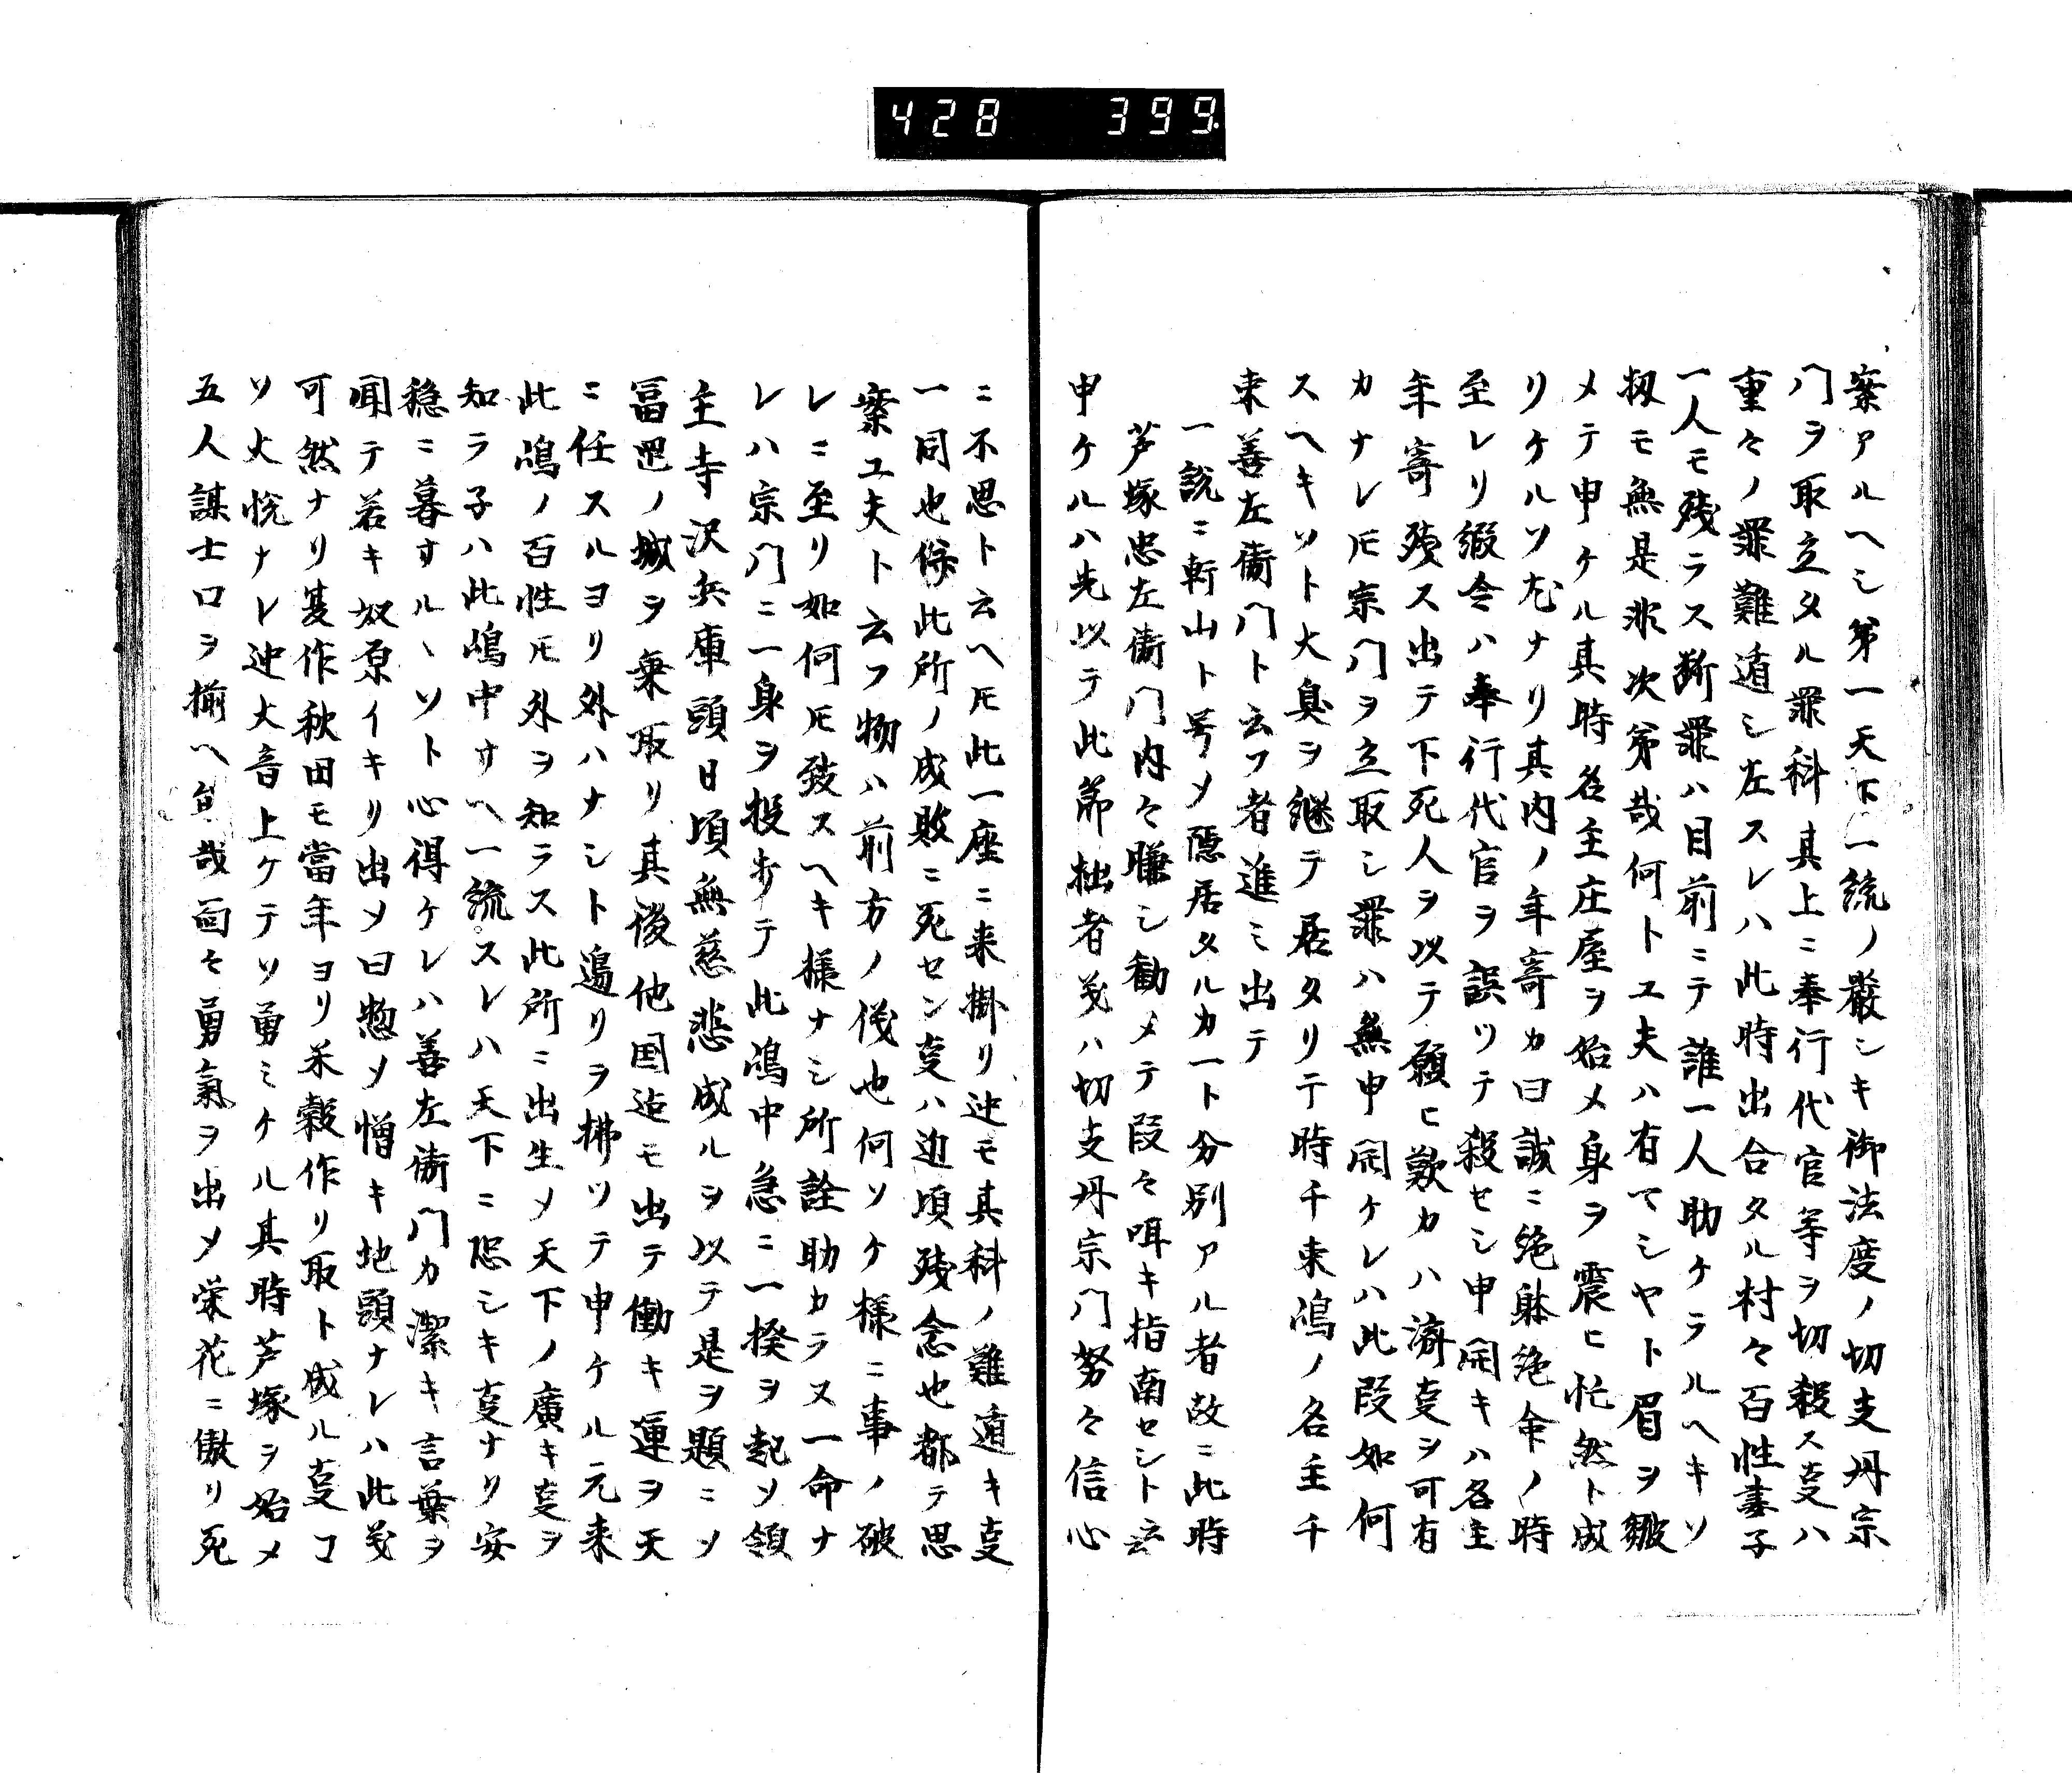 428 399
案アルヘシ第一天下一統ノ嚴シキ御法度ノ切支丹宗
門ヲ取立タル罪科其上ニ奉行代官等ヲ切殺ス㕝ハ
重々ノ罪難遁シ左スレハ此時出合タル村々百性妻子
一人モ残ラス断罪ハ目前ニテ誰一人助ケラルヘキソ
扨モ無是非次第哉何ト工夫ハ有マシヤト眉ヲ皺
メテ申ケル其時名主庄屋ヲ始メ身ヲ震ヒ忙然ト成
リケルソ尤ナリ其内ノ年寄カ曰誠ニ絶躰絶命ノ時
至レリ縦令ハ奉行代官ヲ誤ツテ殺セシ申開キハ名主
年寄残ス出テ下死人ヲ以テ願ヒ歎カハ済㕝ヲ可有
カナレ𪜈宗門ヲ立取シ罪ハ無申開ケレハ此段如何
スヘキソト大息ヲ継テ居タリテ時千束嶋ノ名主千
束善左衛門ト云フ者進ミ出テ
一説ニ斬山ト号メ隠居タルカ一ト分別アル者故ニ此時
芦塚忠左衛門内々賺シ勧メテ段々咡キ指南セシト云
申ケルハ先以テ此節拙者義ハ切支丹宗門努々信心
ニ不思ト云ヘ𪜈此一座ニ来掛リ迚モ其科ノ難遁キ㕝
一同也倐此所ノ成敗ニ死セン㕝ハ近頃残念也都テ思
案工夫ト云フ物ハ前方ノ儀也何ソケ様ニ事ノ破
レニ至リ如何𪜈致スヘキ様ナシ所詮助カラヌ一命ナ
レハ宗門ニ一身ヲ投步テ此嶋中急ニ一揆ヲ起ソ領
主寺沢兵庫頭日頃無慈悲成ルヲ以テ是ヲ題ニソ
冨罡ノ城ヲ乗取リ其後他国迄モ出テ働キ運ヲ天
ニ任スルヨリ外ハナシト邉リヲ拂ツテ申ケル元来
此嶋ノ百性𪜈外ヲ知ラス此所ニ出生メ天下ノ廣キ㕝ヲ
知ラ子ハ此嶋中サヘ一流スレハ天下ニ恐シキ㕝ナリ安
穏ニ暮サルヽソト心得ケレハ善左衛門カ潔キ言葉ヲ
聞テ若キ奴原イキリ出メ曰惣メ憎キ地頭ナレハ此義
可然ナリ夏作秋田モ當年ヨリ米穀作リ取ト成ル㕝コ
ソ大悦ナレ迚大音上ケテソ勇ミケル其時芦塚ヲ始メ
五人謀士口ヲ揃ヘ哉面々勇氣ヲ出メ栄花ニ傲リ死